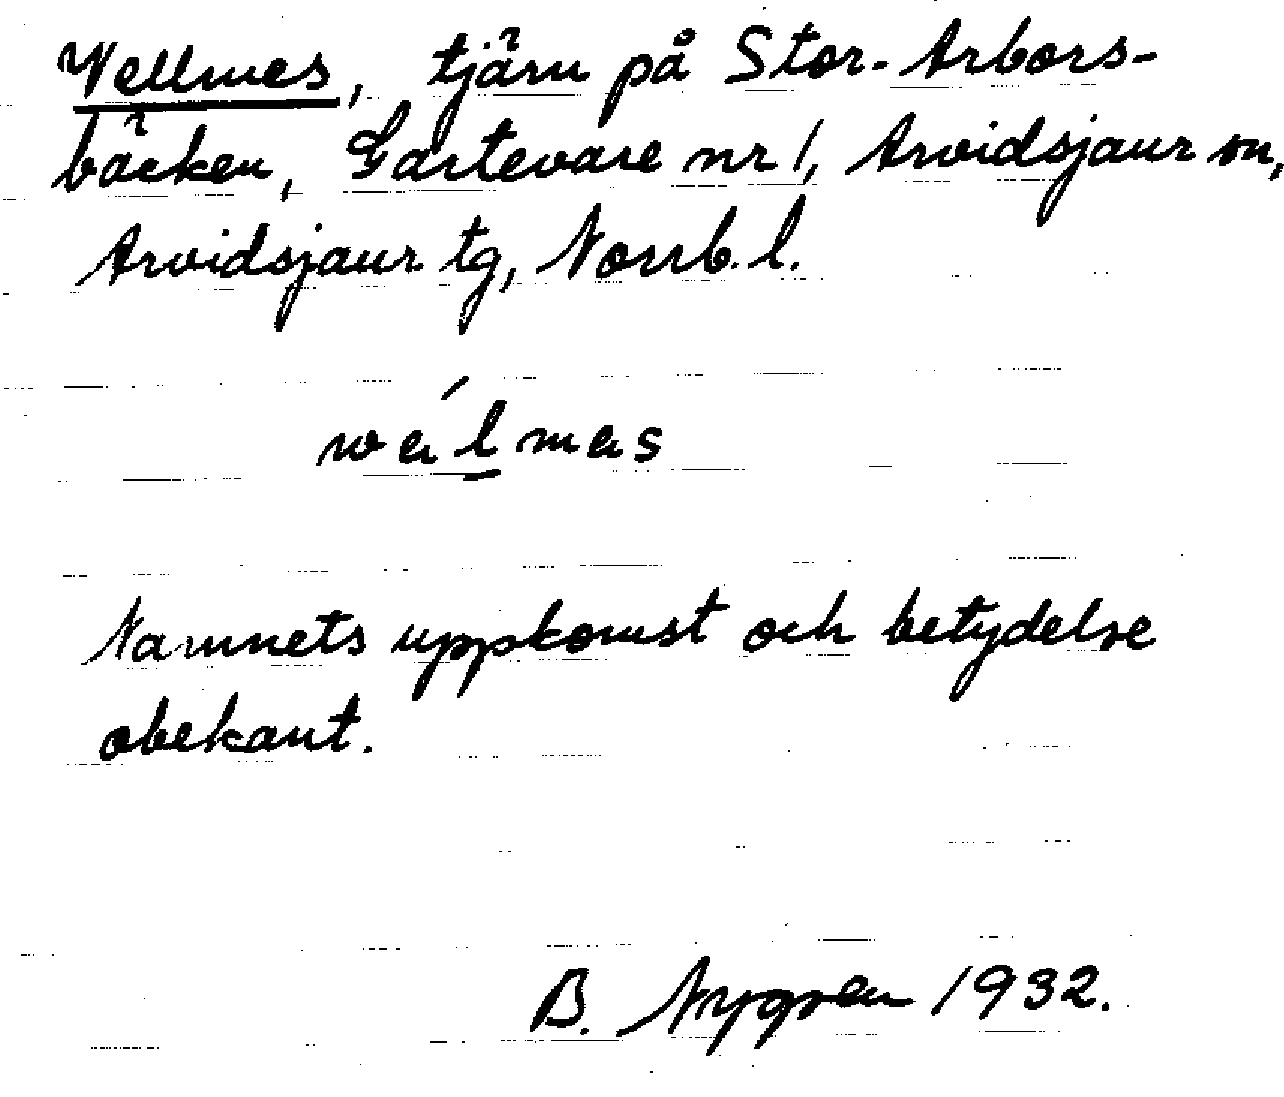 Vellmes, tjärn på Stor-Arbors-
bäcken, Gartevare nr 1, Arvidsjaur sn,
Arvidsjaur tg, Norrb. l.
Namnets uppkomst och betydelse
obekant.
B. Nygren 1932.